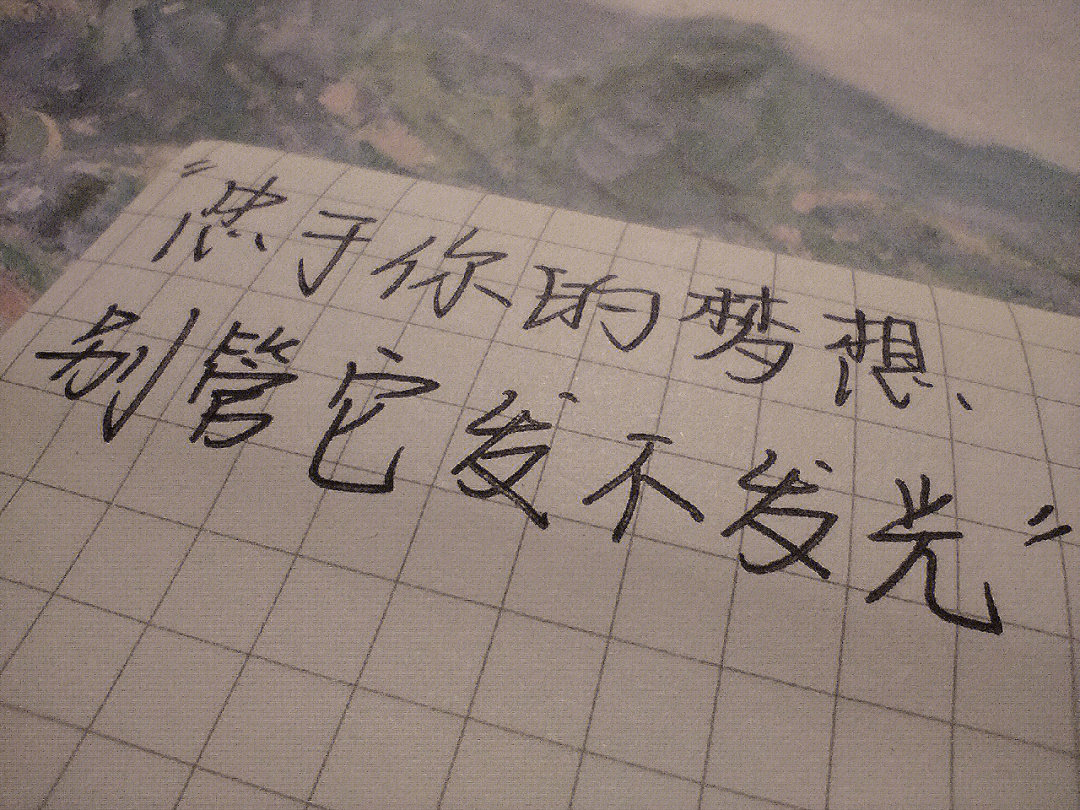 "忠于你的梦想、
别管它发不发光"